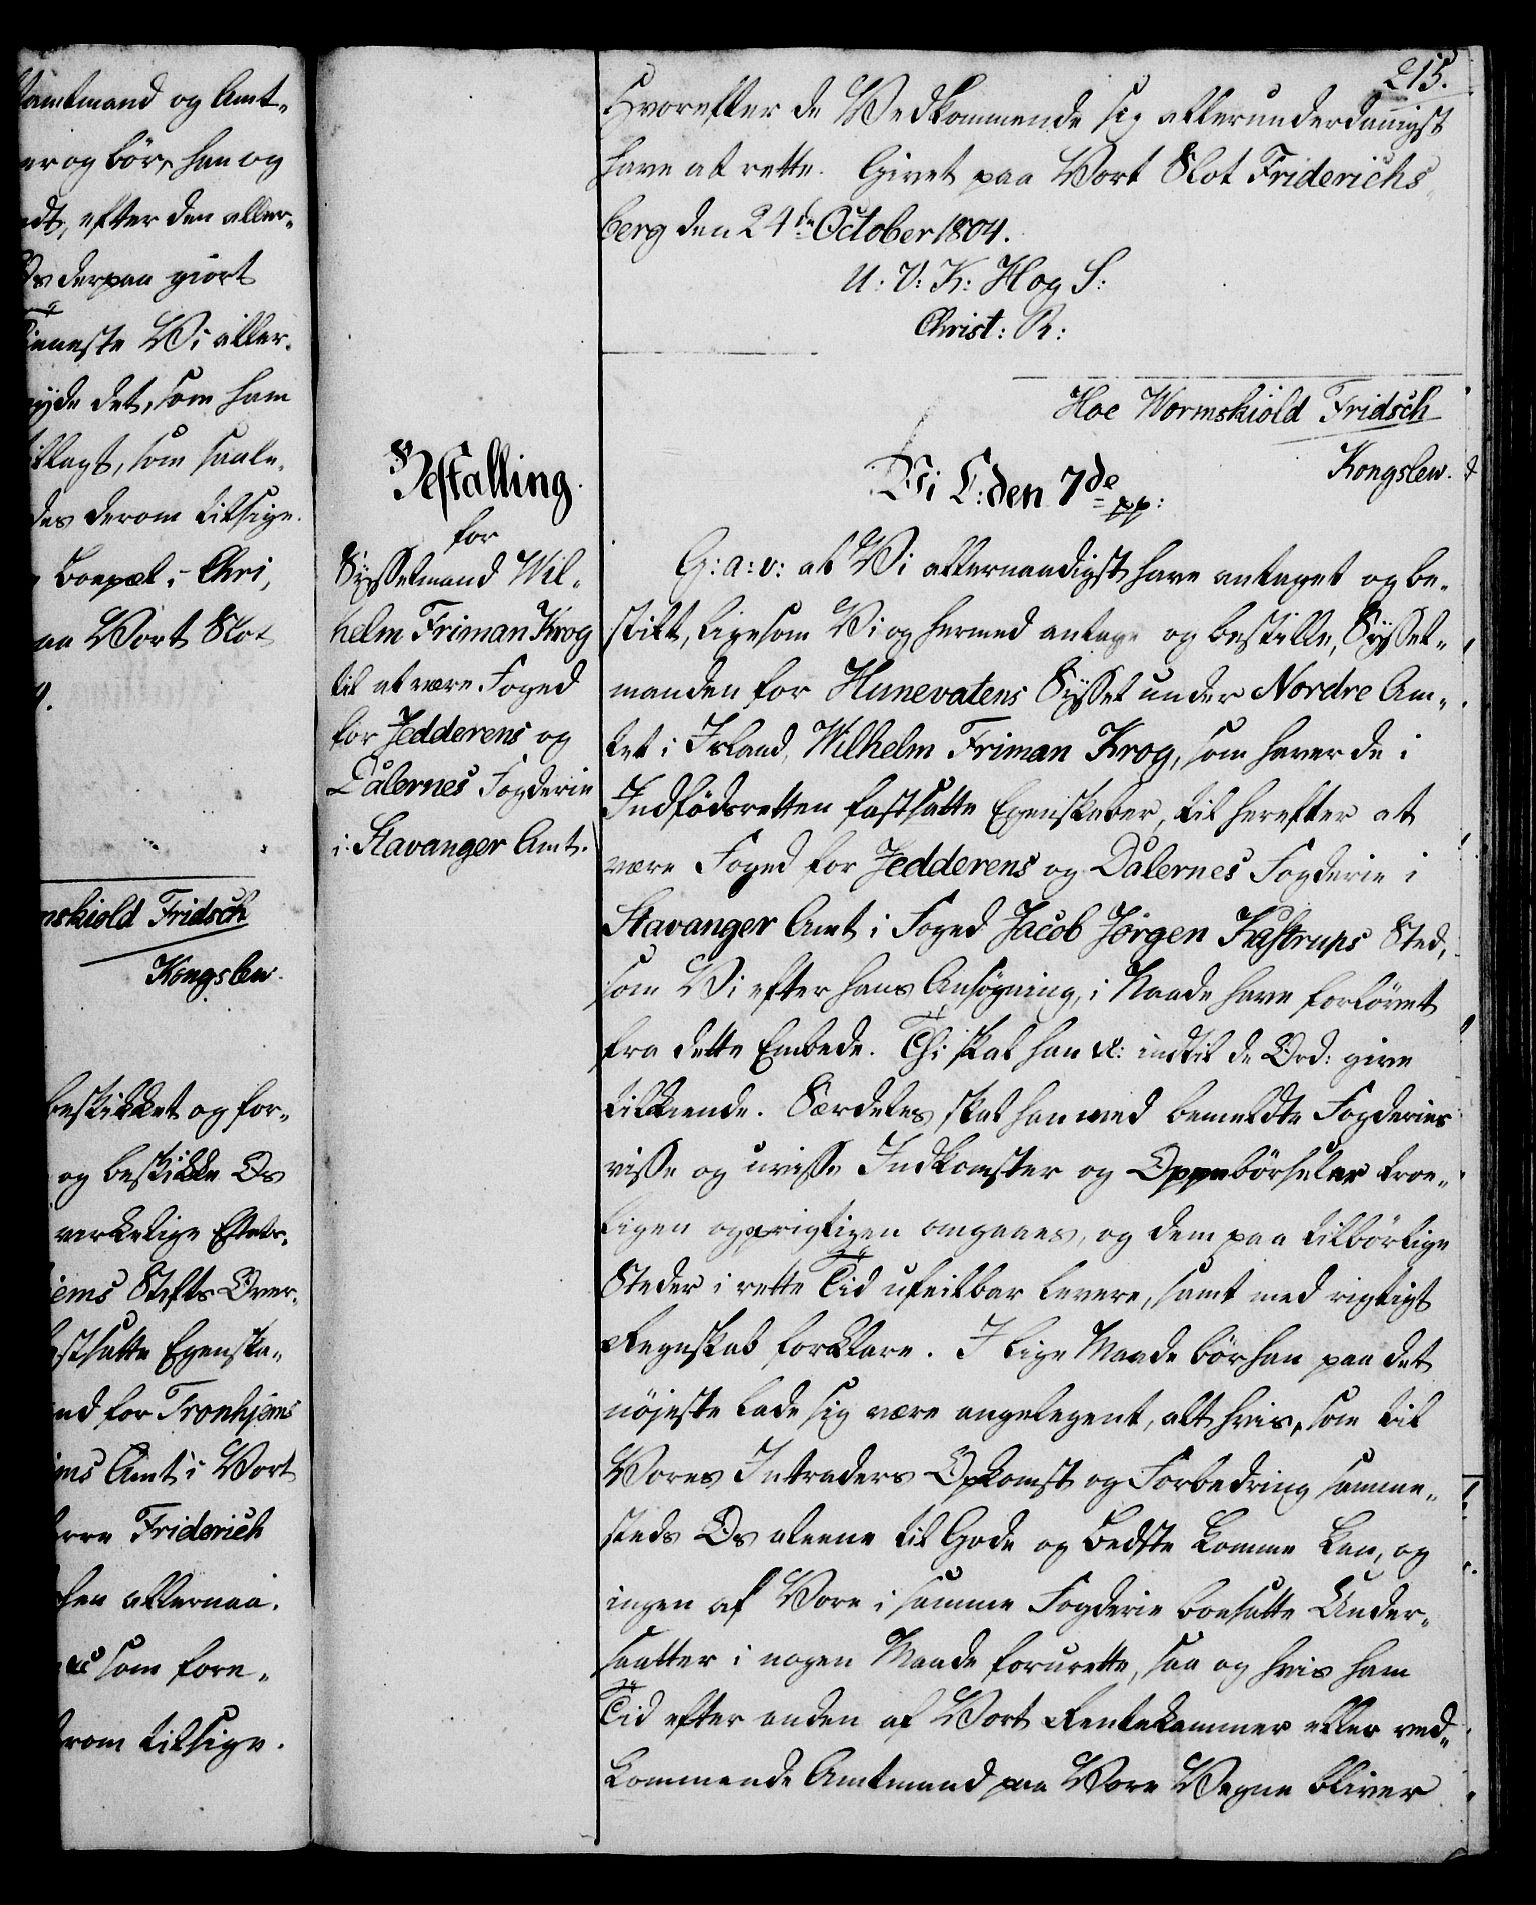 tamtmand og Amt-
er og bör, han og
ndt, efter den aller-
Os derpaa giort
Tieneste Vi aller-
nyde det, som ham
illagt, som saale-
des derom tilsige.
Boepæl i Chri,
aa Vort Slot
mskiold Fridsch
Kongslew.
beskikket og for-
og beskikke Os
verkelige Etats-
jems Stifts Over-
astsatte Egenska-
nd for Tronhjems
ms Amt i Vort
erre Friderich
han allernaa-
&c som fore-
rom tilsige.
215.
Hvorefter de Vedkommende sig allerunderdanigst
have at rette. Givet paa Vort Slot Friderichs
berg den 24de October 1804.
U: V: K: H og S:
Christ: R:
Hoe Wormskiold Fridsch
Kongslew.
Bestalling
for
Sysselmand Wil-
helm Friman Krog
til at være Foged
for Jedderens og
Dalernes Fogderie
i Stavanger Amt.
Vi C: den 7de pp:
G: a: v: at Vi allernaadigst have antaget og be-
stilt, ligesom Vi og hermed antage og bestille, Syssel-
manden for Hunevatens Syssel under Nordre Am-
tet i Island, Wilhelm Friman Krog, som haver de i
Indfödsretten fastsatte Egenskaber, til herefter at
være Foged for Jedderens og Dalernes Fogderie i
Stavanger Amt i Foged Jacob Jörgen Kastrups Sted,
som Vi efter hans Ansögning, i Naade have forlövet
fra dette Embede. Thi skal han &: indtil de Ord: give
tilkiende. Særdeles skal han med bemeldte Fogderies
visse og uvisse Indkomster og Oppebörseler troe-
ligen oprigtigen omgaaes, og dem paa tilbörlige
Steder i rette Tid ufeilbar levere, samt med rigtigt
Regnskab forklare. I lige Maade bör han paa det
nöjeste lade sig være angelegent, alt hvis, som til
Vores Intraders Opkomst og Forbedring samme-
steds Os aleene til Gode og Bedste komme kan, og
ingen af Vore i samme Fogderie boesatte Under-
saatter i nogen Maade forurette, saa og hvis ham
Tid efter anden af Vort Rentekammer eller ved-
kommende Amtmand paa Vore Vegne bliver